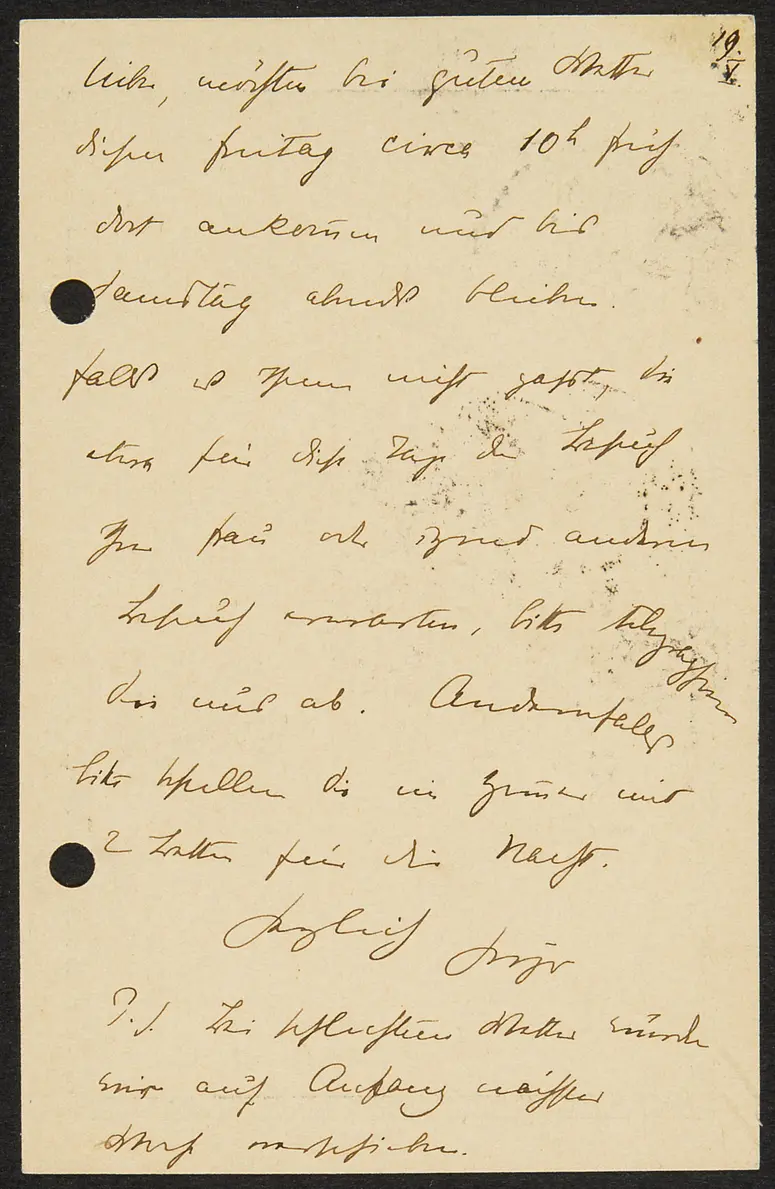 19.
V.
liebe, möchten bei gutem Wetter
diesen Freitag circa 10h früh
dort ankommen und bis
Samstag abends bleiben.
Falls es Ihnen nicht passt, Sie
etwa für diese Tage den Besuch
Ihrer Frau oder irgend anderen
Besuch erwarten, bitte telegraphieren
Sie uns ab. Andernfalls
bitte bestellen Sie ein Zimmer mit
2 Betten für die Nacht.
Herzlich
P.S. Bei schlechtem Wetter würde
wir auf Anfang nächster
Woche verschieben.